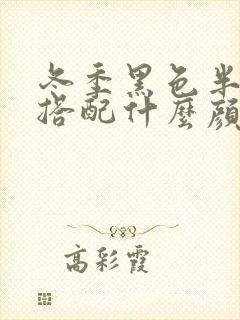 冬季黑色半
搭配什麼顏
高彩霞